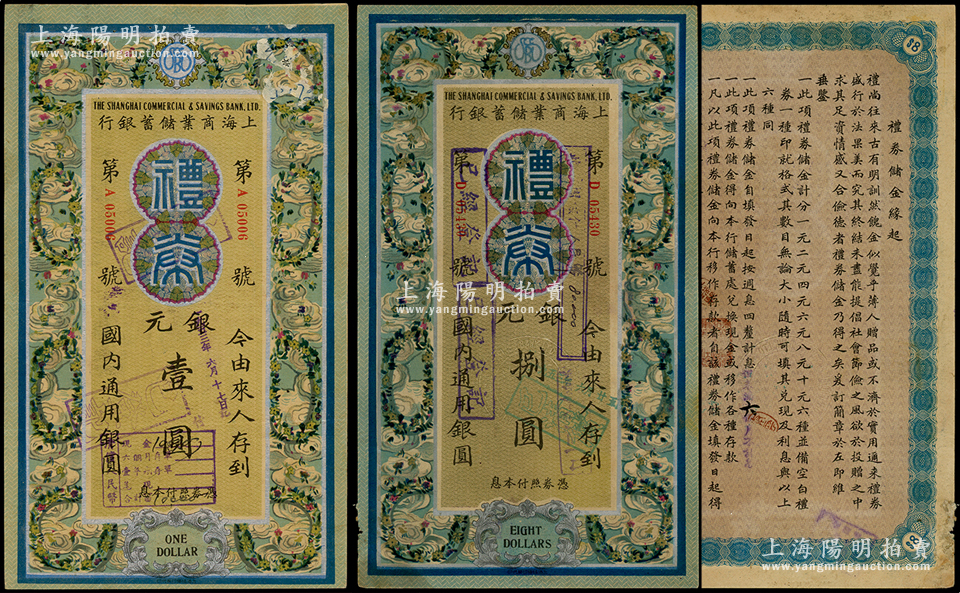 上海陽明拍賣
www.yangmingauction.com
THE SHANGHAI COMMERCIAL & SAVINGS BANK, LTD.
行銀蓄儲業商海上
禮
券
第 A 05006 號
第 A 05006 號
元銀
壹
圓
今由來人存到
國內通用銀圓
三年六月十七日
息本付照券憑
ONE
DOLLAR
上海陽明拍賣
www.yangmingauction.com
THE SHANGHAI COMMERCIAL & SAVINGS BANK, LTD.
行銀蓄儲業商海上
禮
券
第 D 05430 號
第 D 05430 號
元銀
捌
圓
今由來人存到
國內通用銀圓
息本付照券憑
EIGHT
DOLLARS
上海陽明拍賣
www.yangmingauction.com
禮券儲金緣起
禮尚往來古有明訓然餽金似覺乎薄人贈品或不濟於實用通來禮券
盛行於法果美而究其終結未盡能提倡社會節儉之風欲於投贈之中
求其足資情感又合儉德者禮券儲金乃得之矣爰訂簡章於左即維
垂鑒
一此項禮券儲金計分一元二元四元六元八元十元六種並備空白禮
券一種印就格式其數目無論大小隨時可填其兌現及利息與以上
六種同
一此項禮券儲金自填發日起按週息四厘計息
一此項禮券儲金得向本行儲蓄處兌換現金或移作各種存款
一凡以此項禮券儲金向本行移作存款者自該禮券儲金填發日起得
上海陽明拍賣
www.yangmingauction.com